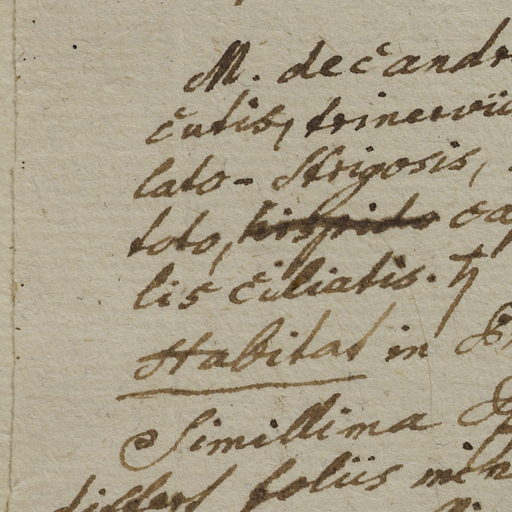 M. decandr
cutis, trinervii
lato-strigosis,
toto, hispido ca
lis ciliatis. ♄
Habitat in
Simillima
differt foliis min